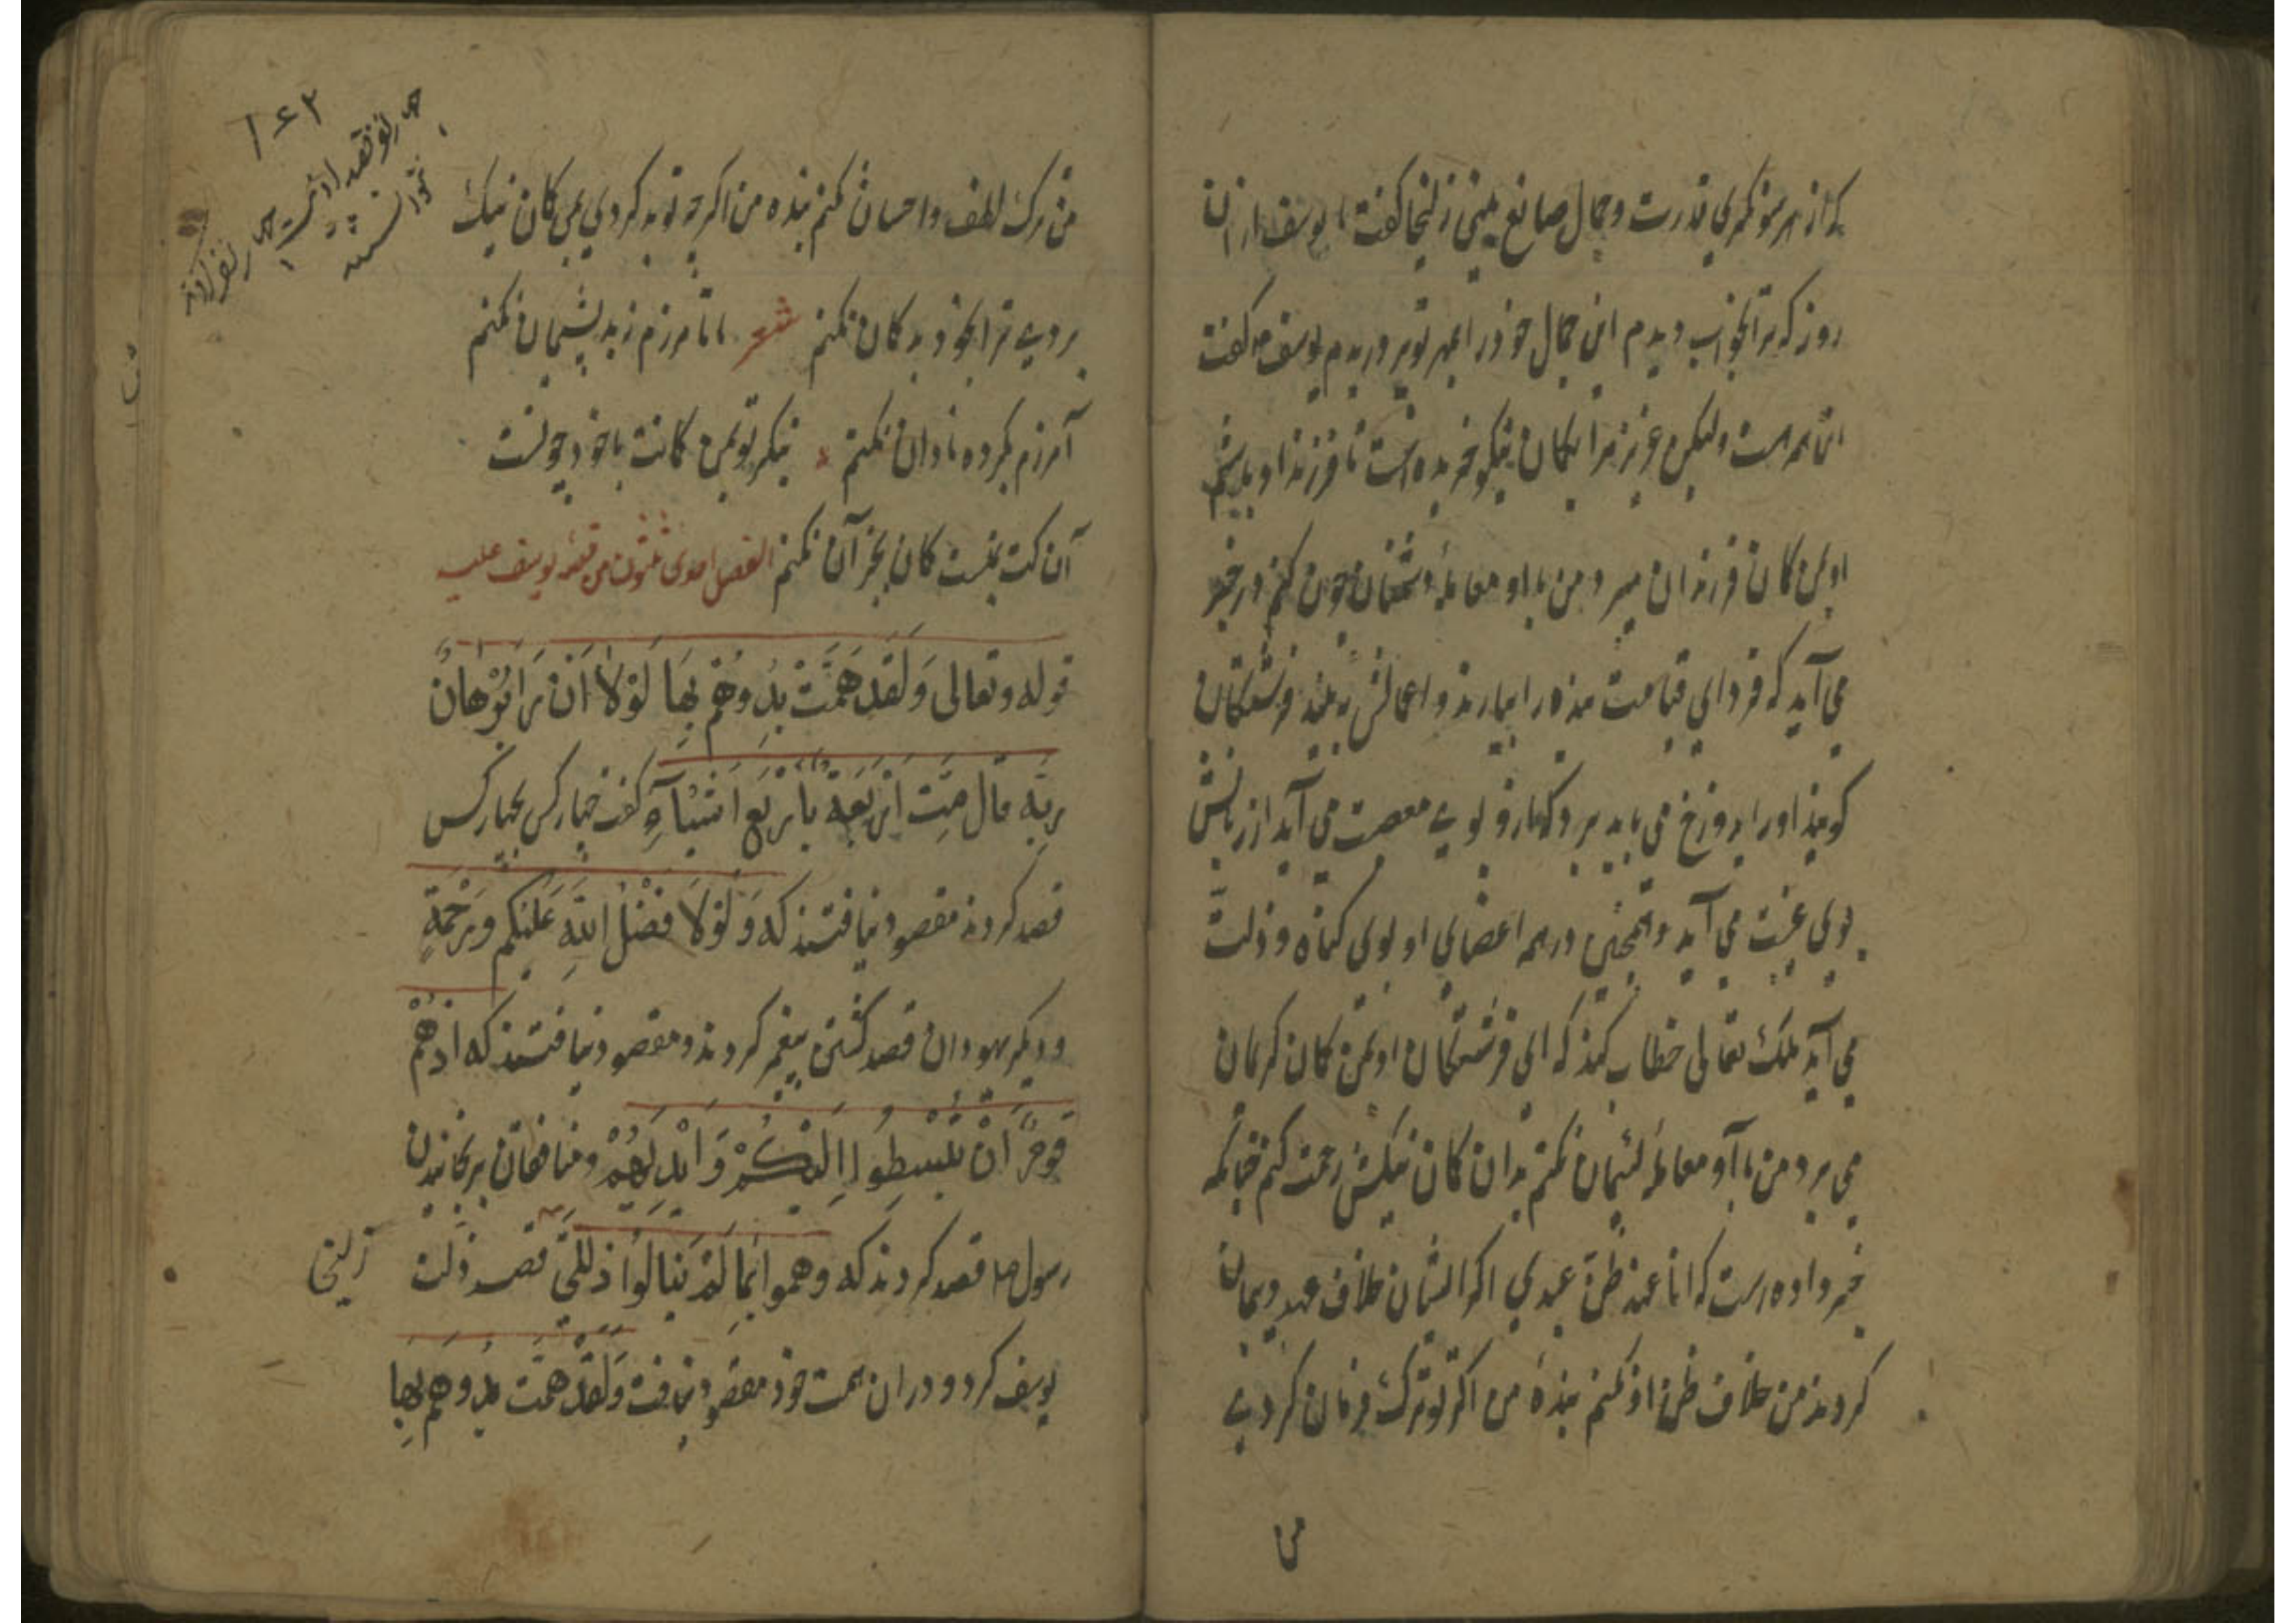 که از هر سو نگری قدرت و جمال صانع بینی زلیخا گفت یا یوسف از آن
روز که ترا بخواب دیدم این جمال خود را بمهر تو پروریدم یوسف ع م گفت
این همه است ولیکن عزیز مرا بگمان نیکو خریده است تا فرزند او باشم
او بمن گمان فرزندان میبرد من با او معامله دشمنان چون کنم در خبر
می آید که فردای قیامت بنده را بیارند و اعمالش ببینند فرشتگان
گویند او را بدوزخ می باید برد که از وی بوی معصیت می آید از زبانش
بوی غیبت می آید و همچنین در همه اعضای او بوی گناه و ذلت
می آید ملک تعالی خطاب کند که ای فرشتگان او بمن گمان کریمان
می برد من با او معامله لئیمان نکنم بدان گمان نیکش رحمت کنم چنانکه
خبر داده است که انا عند ظن عبدی اگر ایشان خلاف عهد و پیمان
کردند من خلاف ظن او نکنم بنده من اگر تو ترک فرمان کردی
من
۱۶۲
من ترک لطف و احسان نکنم بنده من اگر چه تو بد کردی بمن گمان نیک
بردی ترا بخود بد گمان نکنم شعر تا نامرزم ز بد پشیمان نکنم
آمرزم کرده نادان نکنم بنگر تو بمن گمانت با خود چونست
آن کت بمنست گمان بجز آن نکنم الفصل احدی ثلثون من قصه یوسف علیه
قوله وتعالی وَلَقَد هَمَّتْ بِهِ وهَمَّ بِهَا لَوْلَا اَنْ رَا بُرْهَانَ
رَبِّه قال هَمَّت اَرْبَعَة بِاَرْبَع اَشْیَآءٍ گفت چهار کس بچهار کس
قصد کردند مقصود نیافتند که وَلَوْلَا فَضْلُ اللّهِ عَلَیْکُم وَرَحْمَة
و دیگر یهودان قصد کشتن پیغمبر کردند و مقصود نیافتند که اذ هَمَّ
قَومٌ اَنْ یَبْسُطُوا اِلَیْکُمْ اَیْدِیَهُمْ و منافقان برنجانیدن
رسول ص قصد کردند که وهموا بِمَا لَمْ یَنَالُوا قصد ذلت
زلیخا
یوسف کرد و در آن همت خود مقصود نیافت وَلَقَدْ هَمَّت به وهم بِهَا